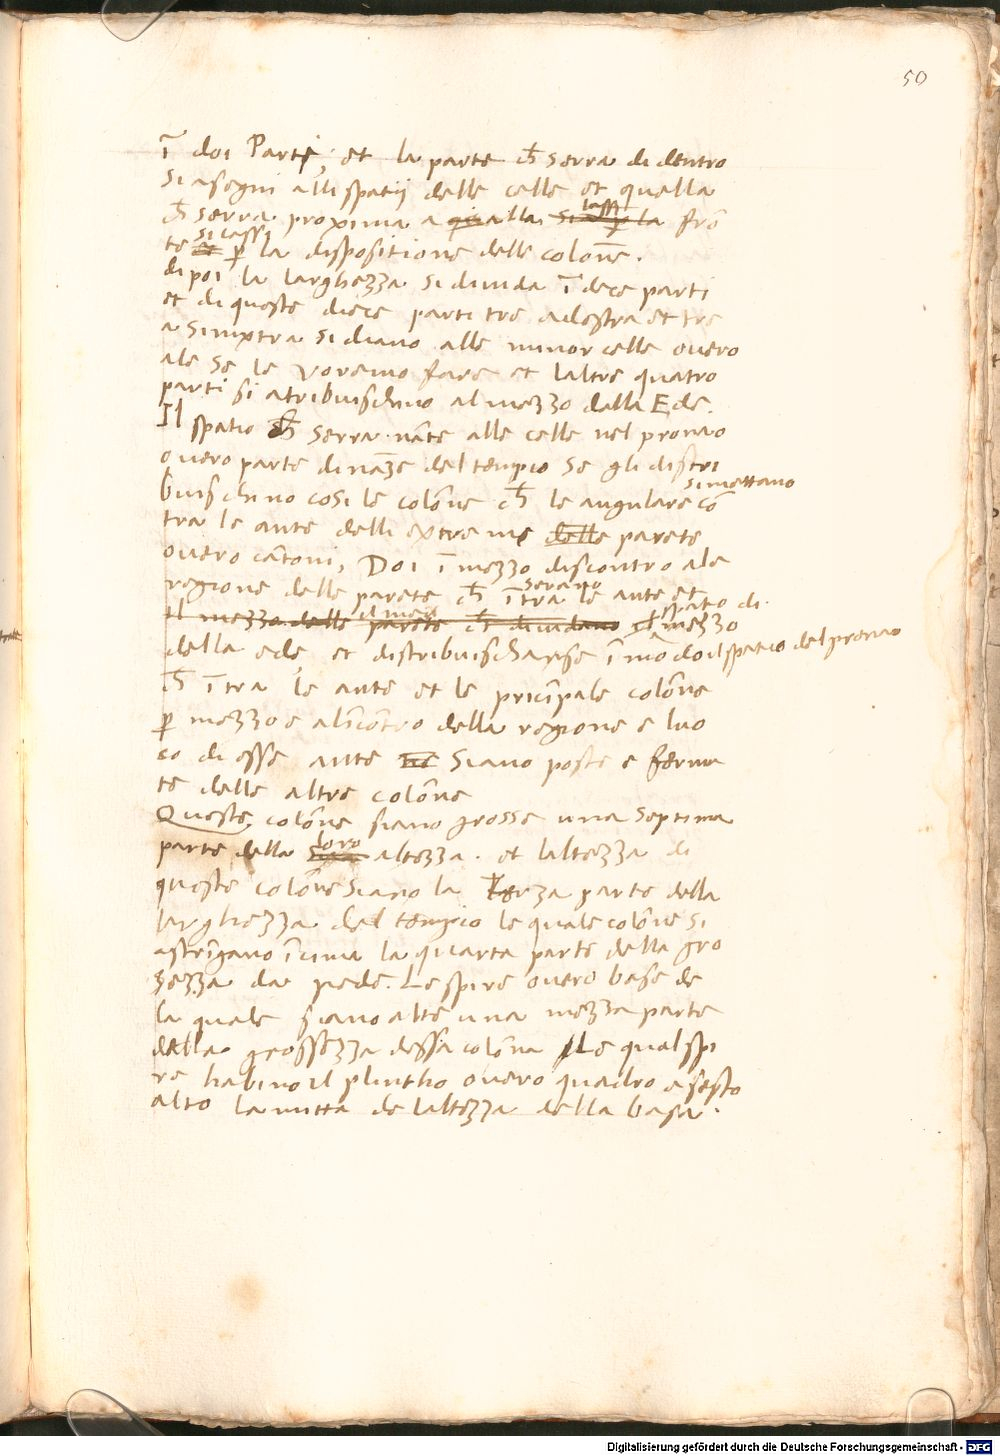 50
ī doi Parti, et la parte ch̄ serra di dentro
si asegni alli spatij delle celle et quella
ch̄ serra proxima a qu alla si lassi p la frō
te et si lassi p la dispositione delle colōne.
di poi la larghezza si diuida ī dece parti
et di queste diece parti tre a destra et tre
a sinixtra si diano alle minor celle overo
ale se le voremo fare et laltre quatro
parti si atribuischino al mezzo dalla Ede.
Il spatio ch̄ serra nāte alle celle nel pronao
overo parte dināze del tempio se gli distri
buischino cosi le colōne ch̄ le angulare si mettano cō
tra le ante delli extreme delle parete
overo cātoni, Doi ī mezzo discontro ale
regione delle parete ch̄ ītra serano le ante et
il mezzo delle parete il mezzo ch̄ diuidano el spatio di mezzo
della ede, et distribuischanse ī mōdo il spatio del pronao
ch̄ ītra le ante et le pricīpale colōne
p mezzo e alīcōtro della regione e luo
co di esse ante ne siano poste e ferma
te delle altre colōne
Queste colōne siano grosse una septima
parte della sua loro altezza. et laltezza di
queste colōne siano la Terza parte della
larghezza del tempio le quale colōne si
astrīgano īcima la quarta parte della gro
sezza da piede. Le spire overo base de
la quale siano alte una mezza parte
della grossezza dessa colōna Le qual spi
re habino il plintho overo quadro a sesto
alto la mitta de laltezza della basa.
Digitalisierung gefördert durch die Deutsche Forschungsgemeinschaft - DFG